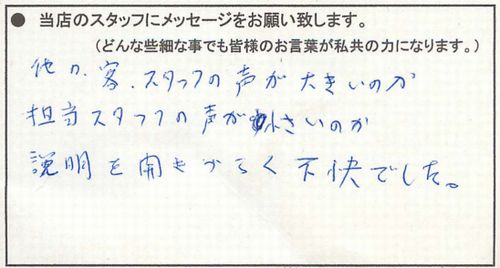 ● 当店のスタッフにメッセージをお願い致します。
(どんな些細な事でも皆様のお言葉が私共の力になります。)
他の、客、スタッフの声が大きいのか
担当スタッフの声が小さいのか
説明を聞きづらく不快でした。